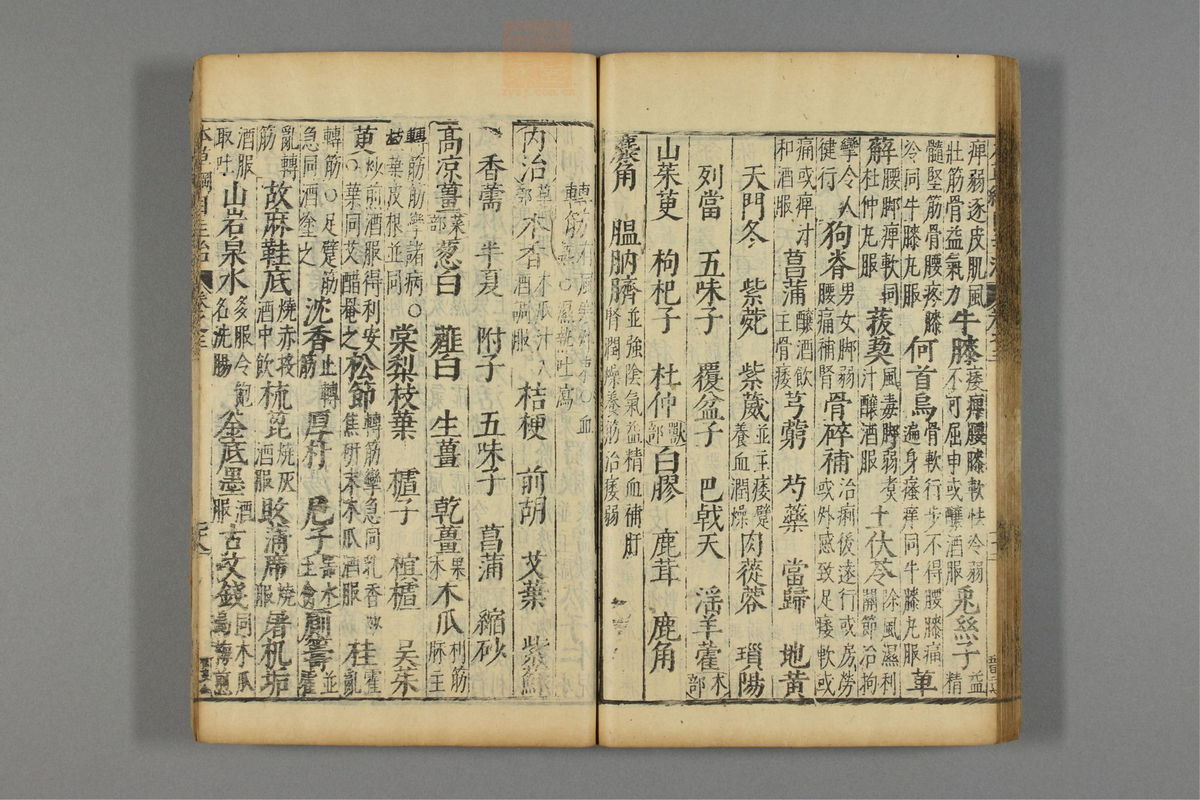 痺弱逐皮肌風 牛膝 痿痺腰膝軟怯冷弱 兎絲子 益
壯筋骨益氣力 不可屈申或釀酒服 精
髓堅筋骨腰疼膝 何首烏 骨軟行步不得腰膝痛 萆
冷同牛膝丸服 遍身瘙痒同牛膝丸服
解 腰脚痺軟同 菝葜 風毒脚弱煮 土伏苓 除風濕利
杜仲丸服 汁釀酒服 關節治拘
攣令人 狗脊 男女脚弱 骨碎補 治痢後遠行或房勞
健行 腰痛補腎 或外感致足痿軟或
痛或痺汁 菖蒲 釀酒飲 芎藭 芍藥 當歸 地黄
和酒服 主骨痿
天門冬 紫菀 紫葳 並主痿躄 肉蓯蓉 瑣陽
養血潤燥
列當 五味子 覆盆子 巴戟天 淫羊藿 木部
山茱萸 枸杞子 杜仲 獸部 白膠 鹿茸 鹿角
麋角 膃肭臍 並強陰氣益精血補肝
腎潤燥養筋治痿弱
轉筋
内治 草部 木香 酒調服 桔梗 前胡 艾葉 紫蘇
香薷 半夏 附子 五味子 菖蒲 縮砂
高凉薑 菜部 葱白 薤白 生薑 乾薑 果木 木瓜 利筋脉主
轉筋筋攣諸病○ 棠梨枝葉 楂子 榠楂 吳茱
枝葉皮根並同
萸 炒煎酒服得利安 松節 轉筋攣急同乳香 桂 霍亂
○葉同艾醋罨之 焦研末木瓜酒服
轉筋○足躄筋 沈香 止轉筋 厚朴 梔子 廁籌 並霍
急同酒塗之
亂轉筋 故麻鞋底 燒赤投酒中飲 梳篦 燒灰酒服 敗蒲席 燒服 屠机垢
酒服取吐 山岩泉水 多服令飽名洗腸 釜底墨 酒服 古文錢 同木瓜烏梅煎